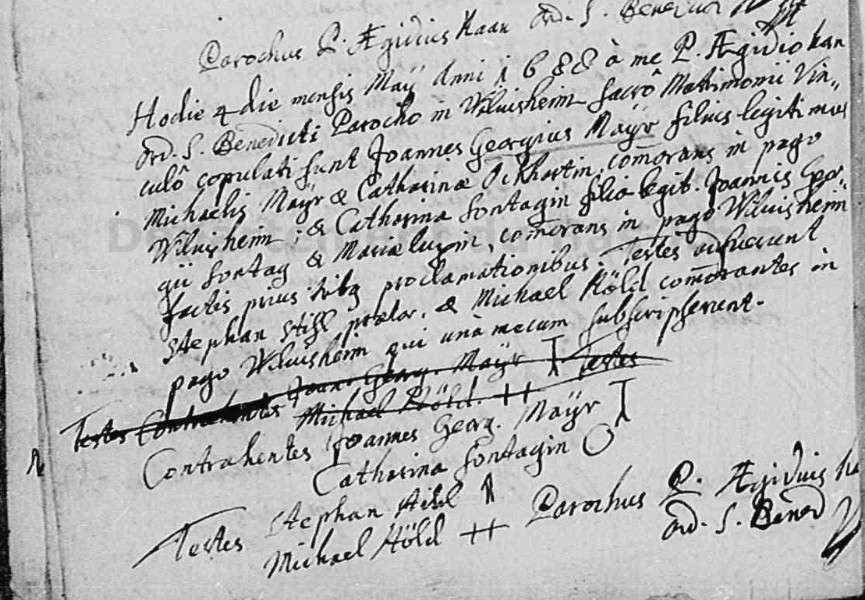 Parochus P. Ægidius Kaan Ord. S. Bened
Hodie 4 die mensis Maÿ Anni 1688 à me P. Ægidio Kan
Ord. S. Benedicti Parocho in Wiluisheim sacrô Matrimonii Vin„
culô copulati sunt Joannes Georgius Maÿr filius legitimus
Michaelis Maÿr & Catharinæ com̄orans in pago
Wiluisheim; & Catharina Sontagin filia legit. Joannis Geor„
gii Sontag & Mariæ com̄orans in pago Wiluisheim
factis prius tribq proclamationibus. Testes adfuerunt
Stephan prætor. & Michael Höld com̄orantes in
pago Wiluisheim qui unà mecum subscripserunt.
Testes Contrahentes Joan. Georg. Maÿr Testes
Michael Höld. ++
Contrahentes Joannes Georg. Maÿr
Catharina Sontagin O
Testes Stephan
Michael Höld ++ Parochus P. Ægidius Ka
Ord. S. Bened